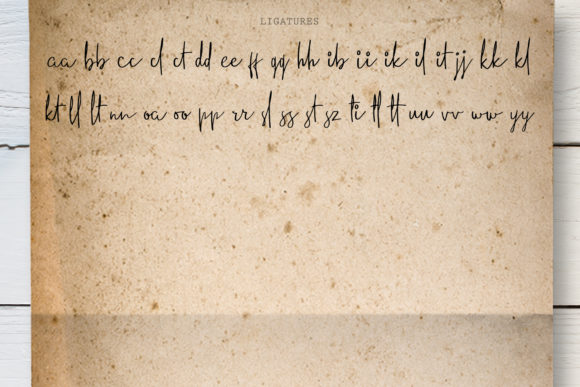 LIGATURES
aa bb cc cl ct dd ee ff gg hh ib ii ik il it jj kk kl
kt ll lt nn oa oo pp rr sl ss st sz ti tl tt uu vv ww yy